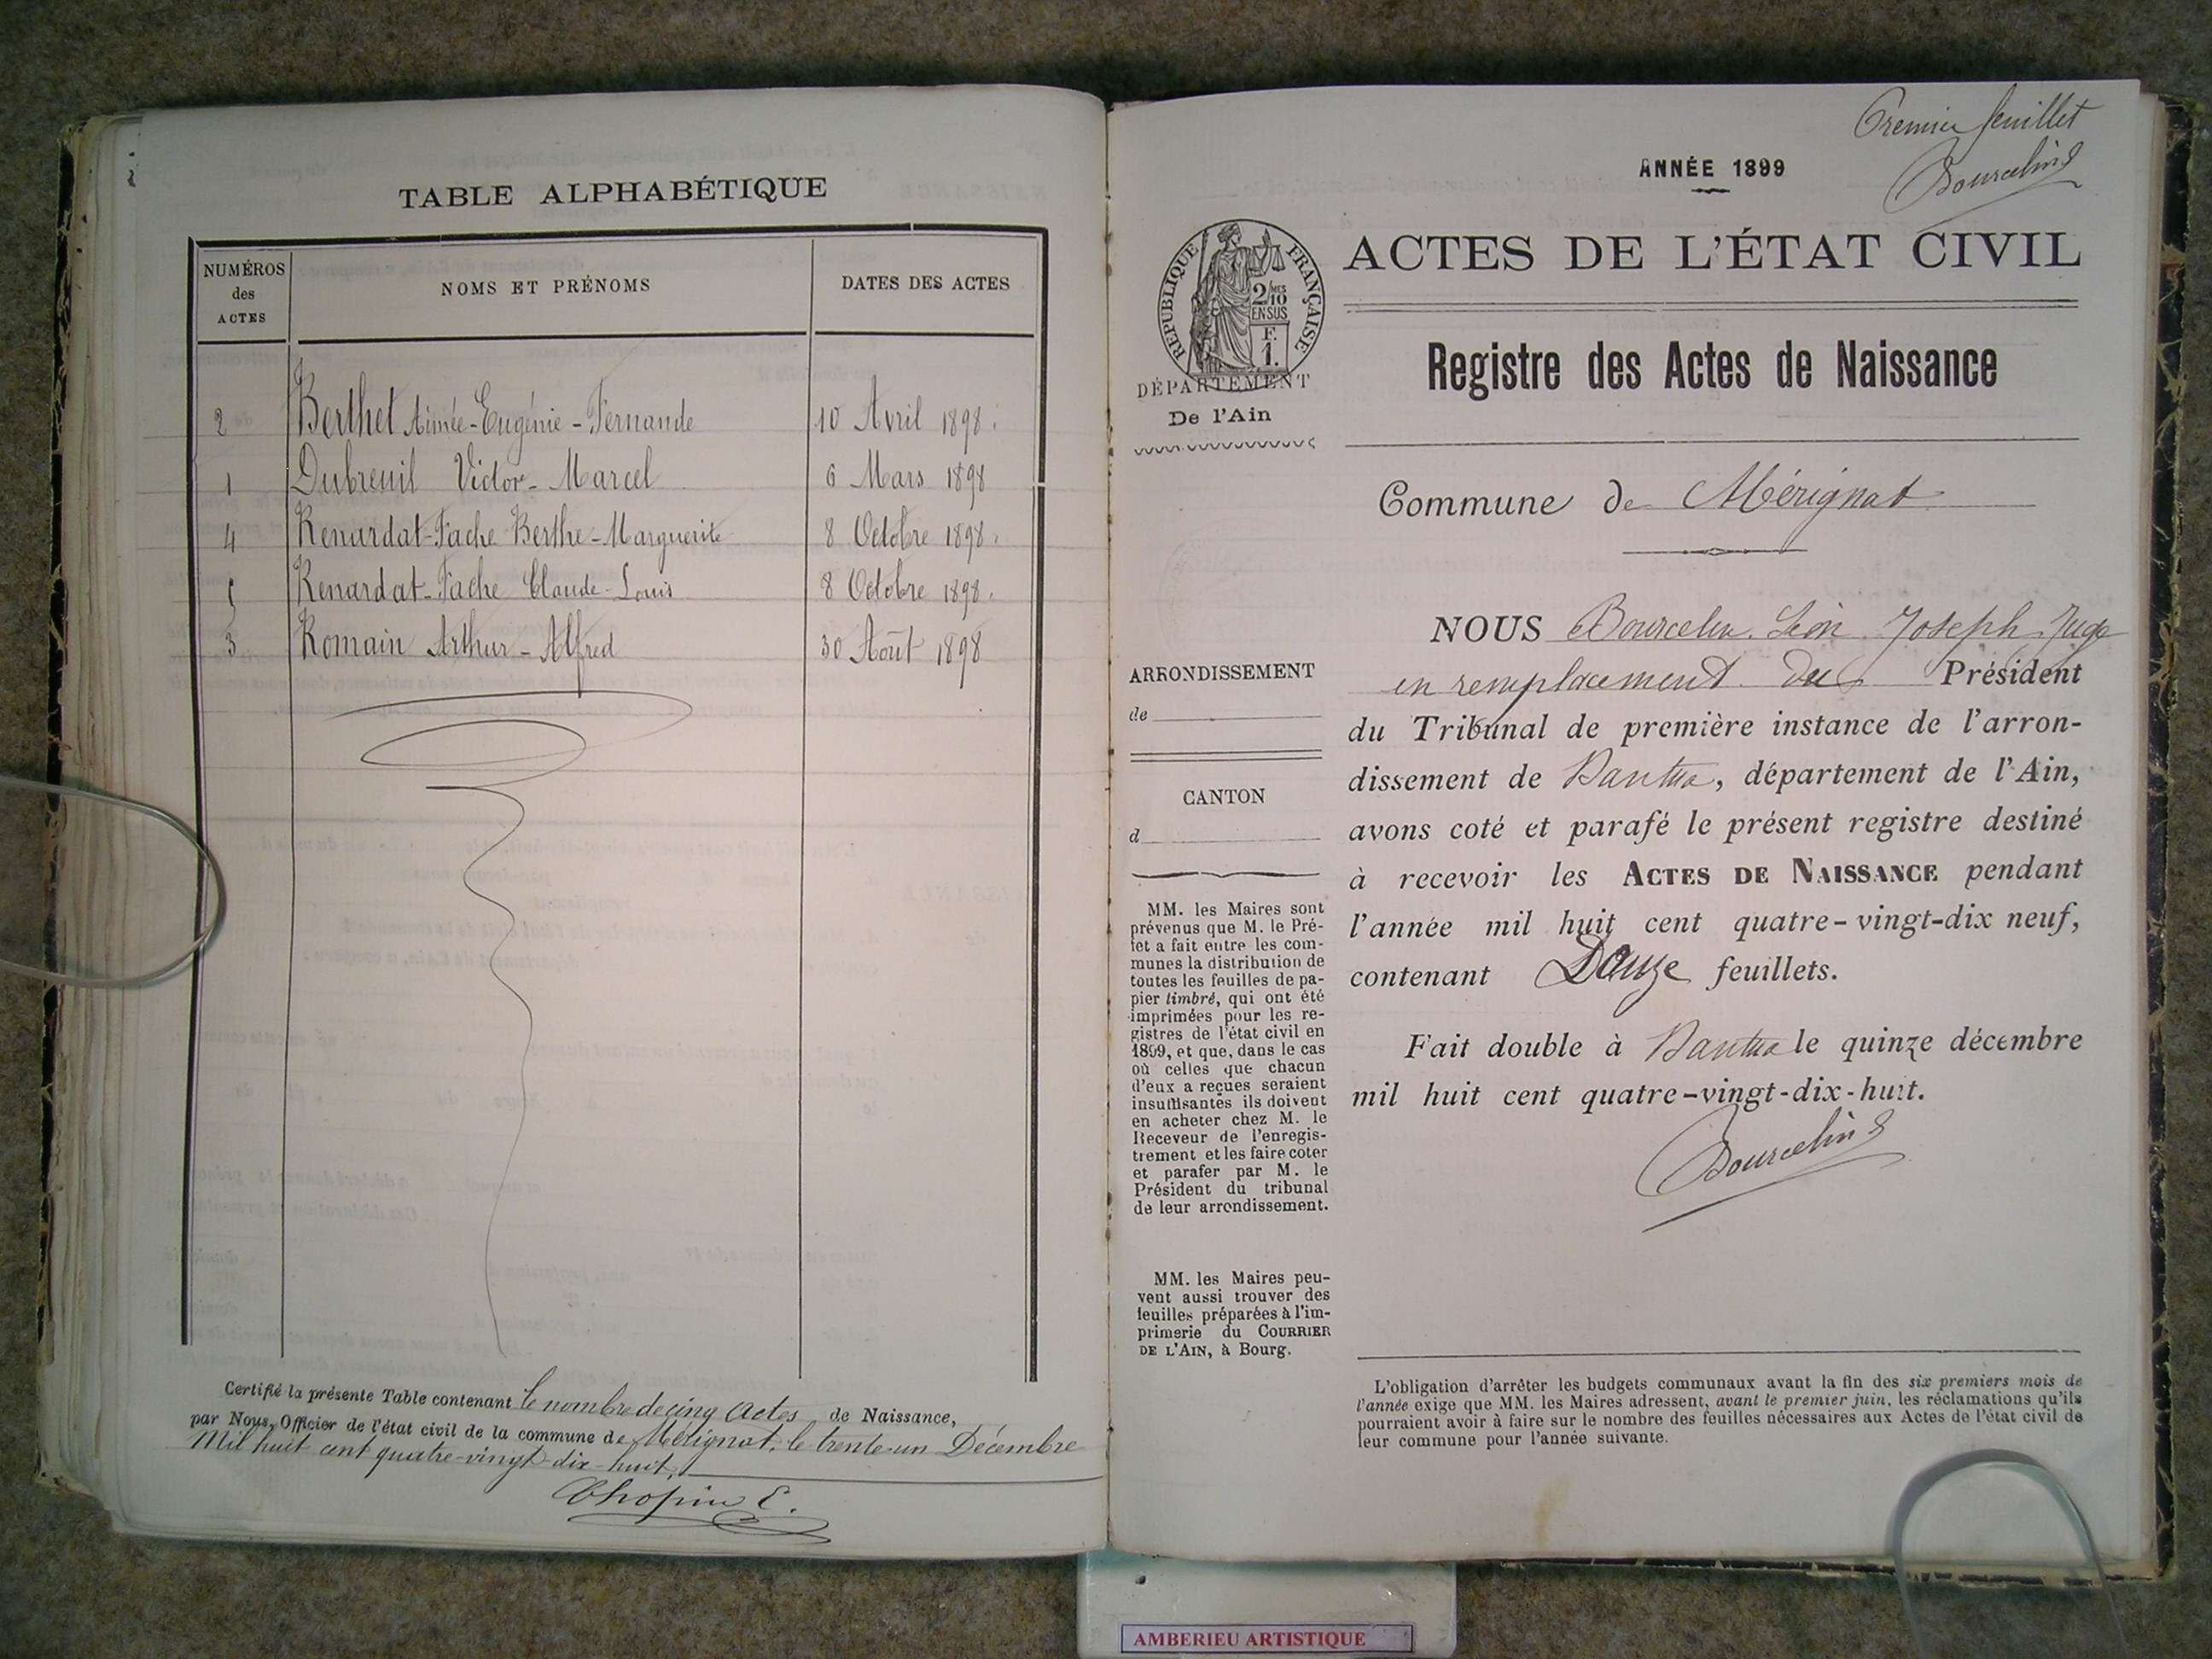 TABLE ALPHABÉTIQUE
NUMÉROS des ACTES NOMS ET PRÉNOMS DATES DES ACTES
2 Berthet Aimée-Eugénie-Fernande 10 Avril 1898.
1 Dubreuil Victor-Marcel 6 Mars 1898
4 Renardat-Fache Berthe-Marguerite 8 Octobre 1898.
5 Renardat-Fache Claude-Louis 8 Octobre 1898.
3 Romain Arthur-Alfred 30 Août 1898
Certifié la présente Table contenant le nombre de cinq Actes de Naissance,
par Nous, Officier de l'état civil de la commune de Mérignat, le trente-un Décembre
Mil huit cent quatre-vingt-dix-huit.
Chopin E.
Premier feuillet
Bourcelin
ANNÉE 1899
RÉPUBLIQUE FRANÇAISE
2/10 MES
EN SUS
F.
1.
DÉPARTEMENT
De l'Ain
ACTES DE L'ÉTAT CIVIL
Registre des Actes de Naissance
Commune de Mérignat
ARRONDISSEMENT
de
CANTON
d
MM. les Maires sont
prévenus que M. le Pré-
fet a fait entre les com-
munes la distribution de
toutes les feuilles de pa-
pier timbré, qui ont été
imprimées pour les re-
gistres de l'état civil en
1899, et que, dans le cas
où celles que chacun
d'eux a reçues seraient
insuffisantes ils doivent
en acheter chez M. le
Receveur de l'enregis-
trement et les faire coter
et parafer par M. le
Président du tribunal
de leur arrondissement.
MM. les Maires peu-
vent aussi trouver des
feuilles préparées à l'im-
primerie du COURRIER
DE L'AIN, à Bourg.
NOUS Bourcelin Léon Joseph Juge
en remplacement du Président
du Tribunal de première instance de l'arron-
dissement de Nantua, département de l'Ain,
avons coté et parafé le présent registre destiné
à recevoir les ACTES DE NAISSANCE pendant
l'année mil huit cent quatre-vingt-dix neuf,
contenant Douze feuillets.
Fait double à Nantua le quinze décembre
mil huit cent quatre-vingt-dix-huit.
Bourcelin
L'obligation d'arrêter les budgets communaux avant la fin des six premiers mois de
l'année exige que MM. les Maires adressent, avant le premier juin, les réclamations qu'ils
pourraient avoir à faire sur le nombre des feuilles nécessaires aux Actes de l'état civil de
leur commune pour l'année suivante.
AMBERIEU ARTISTIQUE